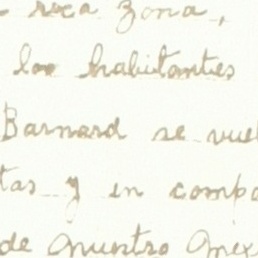 rica zona,
los habitantes
Barnard se vuel
tas y en compa
de nuestro Mex